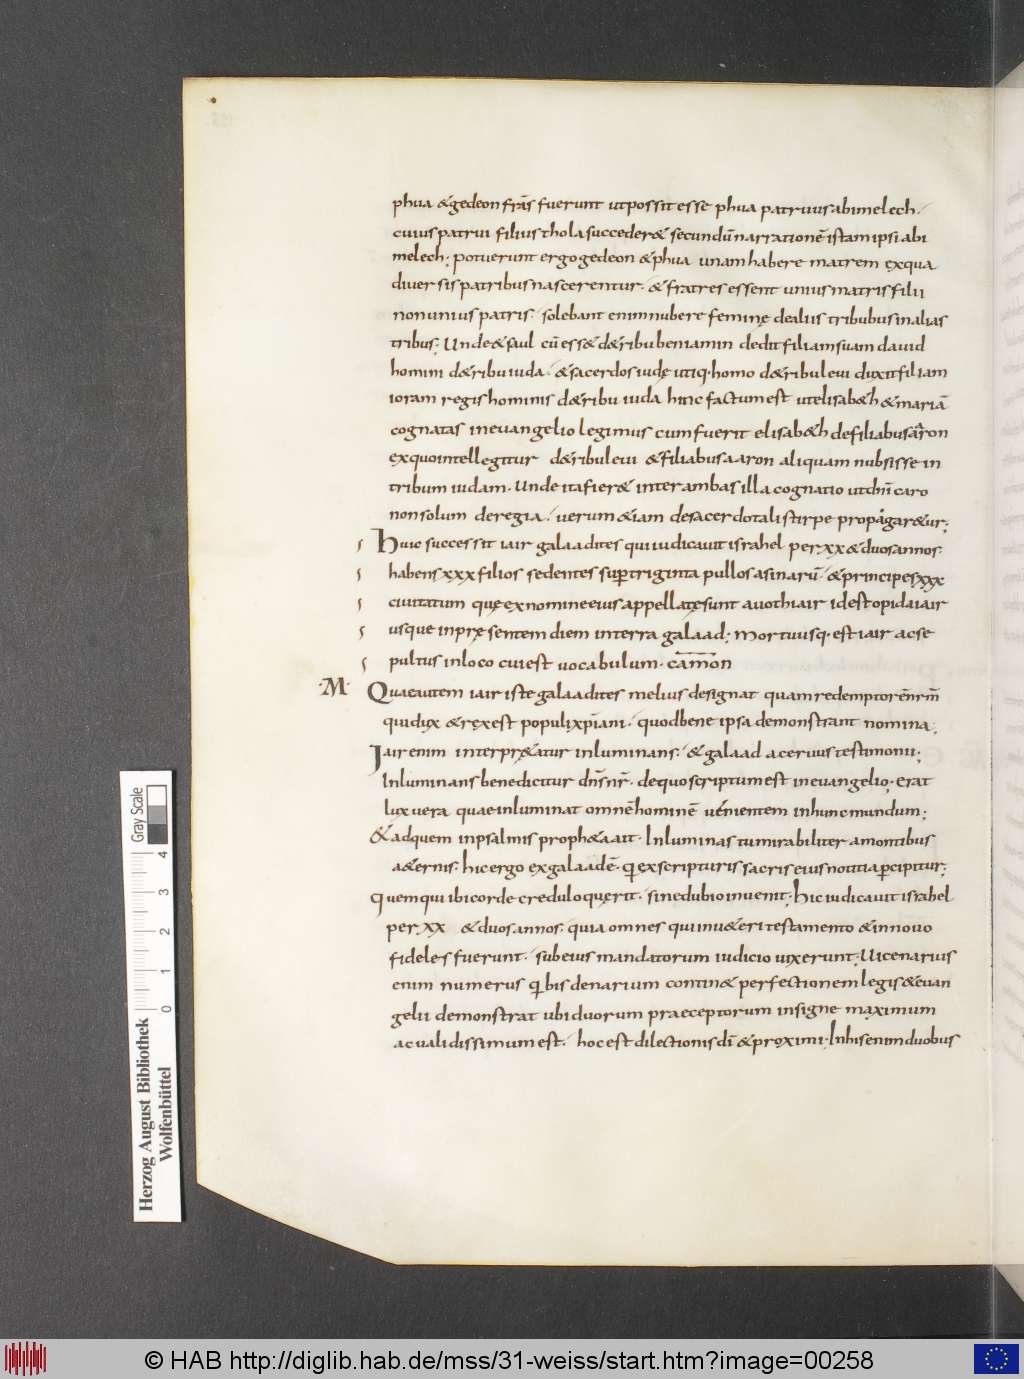 phua &gedeon fr̄s fuerunt utpossit esse phua patruus abimelech.
cuius patrui filius thola succeder& secundū narrationē istam ipsi abi
melech; potuerunt ergo gedeon & phua unam habere matrem exqua
diuersis patribus nascerentur. & fratres essent unius matris filii
non unius patris. solebant enim nubere feminę dealiis tribubus inalias
tribus; Unde & saul cū ess& d&ribu beniamin dedit filiam suam dauid
homini d&ribu iuda. & sacerdos iudę utiq. homo d&ribu leui duxit filiam
ioram regis hominis d&ribu iuda hinc factum est utelisab&h & mariā
cognatas in euangelio legimus cum fuerit elisab&h defiliabus aaron
exquo intellegitur d&ribu leui & filiabus aaron aliquam nubsisse in
tribum iudam. Unde ita fier& inter ambas illa cognatio utdn̄i caro
non solum deregia. uerum &iam desacerdotali stirpe propagar&ur;
Huic successit iair galaadites qui iudicauit israhel per xx & duos annos
habens xxx filios sedentes sup triginta pullos asinarū. & principes xxx
ciuitatum quę exnomine eius appellatę sunt auothiair idest opida iair
usque inpręsentem diem interra galaad; mortuusq. est iair ac se
pultus inloco cui est uocabulum. camon
·M· Quaeautem iair iste galaadites melius designat quam redemptorēnr̄m
qui dux & rex est populi xp̄iani. quod bene ipsa demonstrant nomina;
Iair enim interpr&atur inluminans. & galaad aceruus testimonii;
Inluminans benedicitur dn̄s nr̄. dequo scriptum est in euangelio. erat
lux uera quae inluminat omnē hominē uenientem in hunc mundum;
& adquem inpsalmis proph&a ait. Inluminas tu mirabiliter amontibus
a&ernis. hic ergo exgalaadē. q exscripturis sacris eius notitia pcipitur;
quemqui ibi corde credulo quęrit. sine dubio inuenit; hic iudicauit israhel
per xx & duos annos. quia omnes qui inu&eri testamento & innouo
fideles fuerunt. sub eius mandatorum iudicio uixerunt; Uicenarius
enim numerus q bis denarium contin& perfectionem legis & euan
gelii demonstrat ubi duorum praeceptorum insigne maximum
ac ualidissimum est. hoc est dilectionis dī & proximi. Inhis enim duobus
Gray Scale
0 1 2 3 4
Herzog August Bibliothek
Wolfenbüttel
© HAB http://diglib.hab.de/mss/31-weiss/start.htm?image=00258